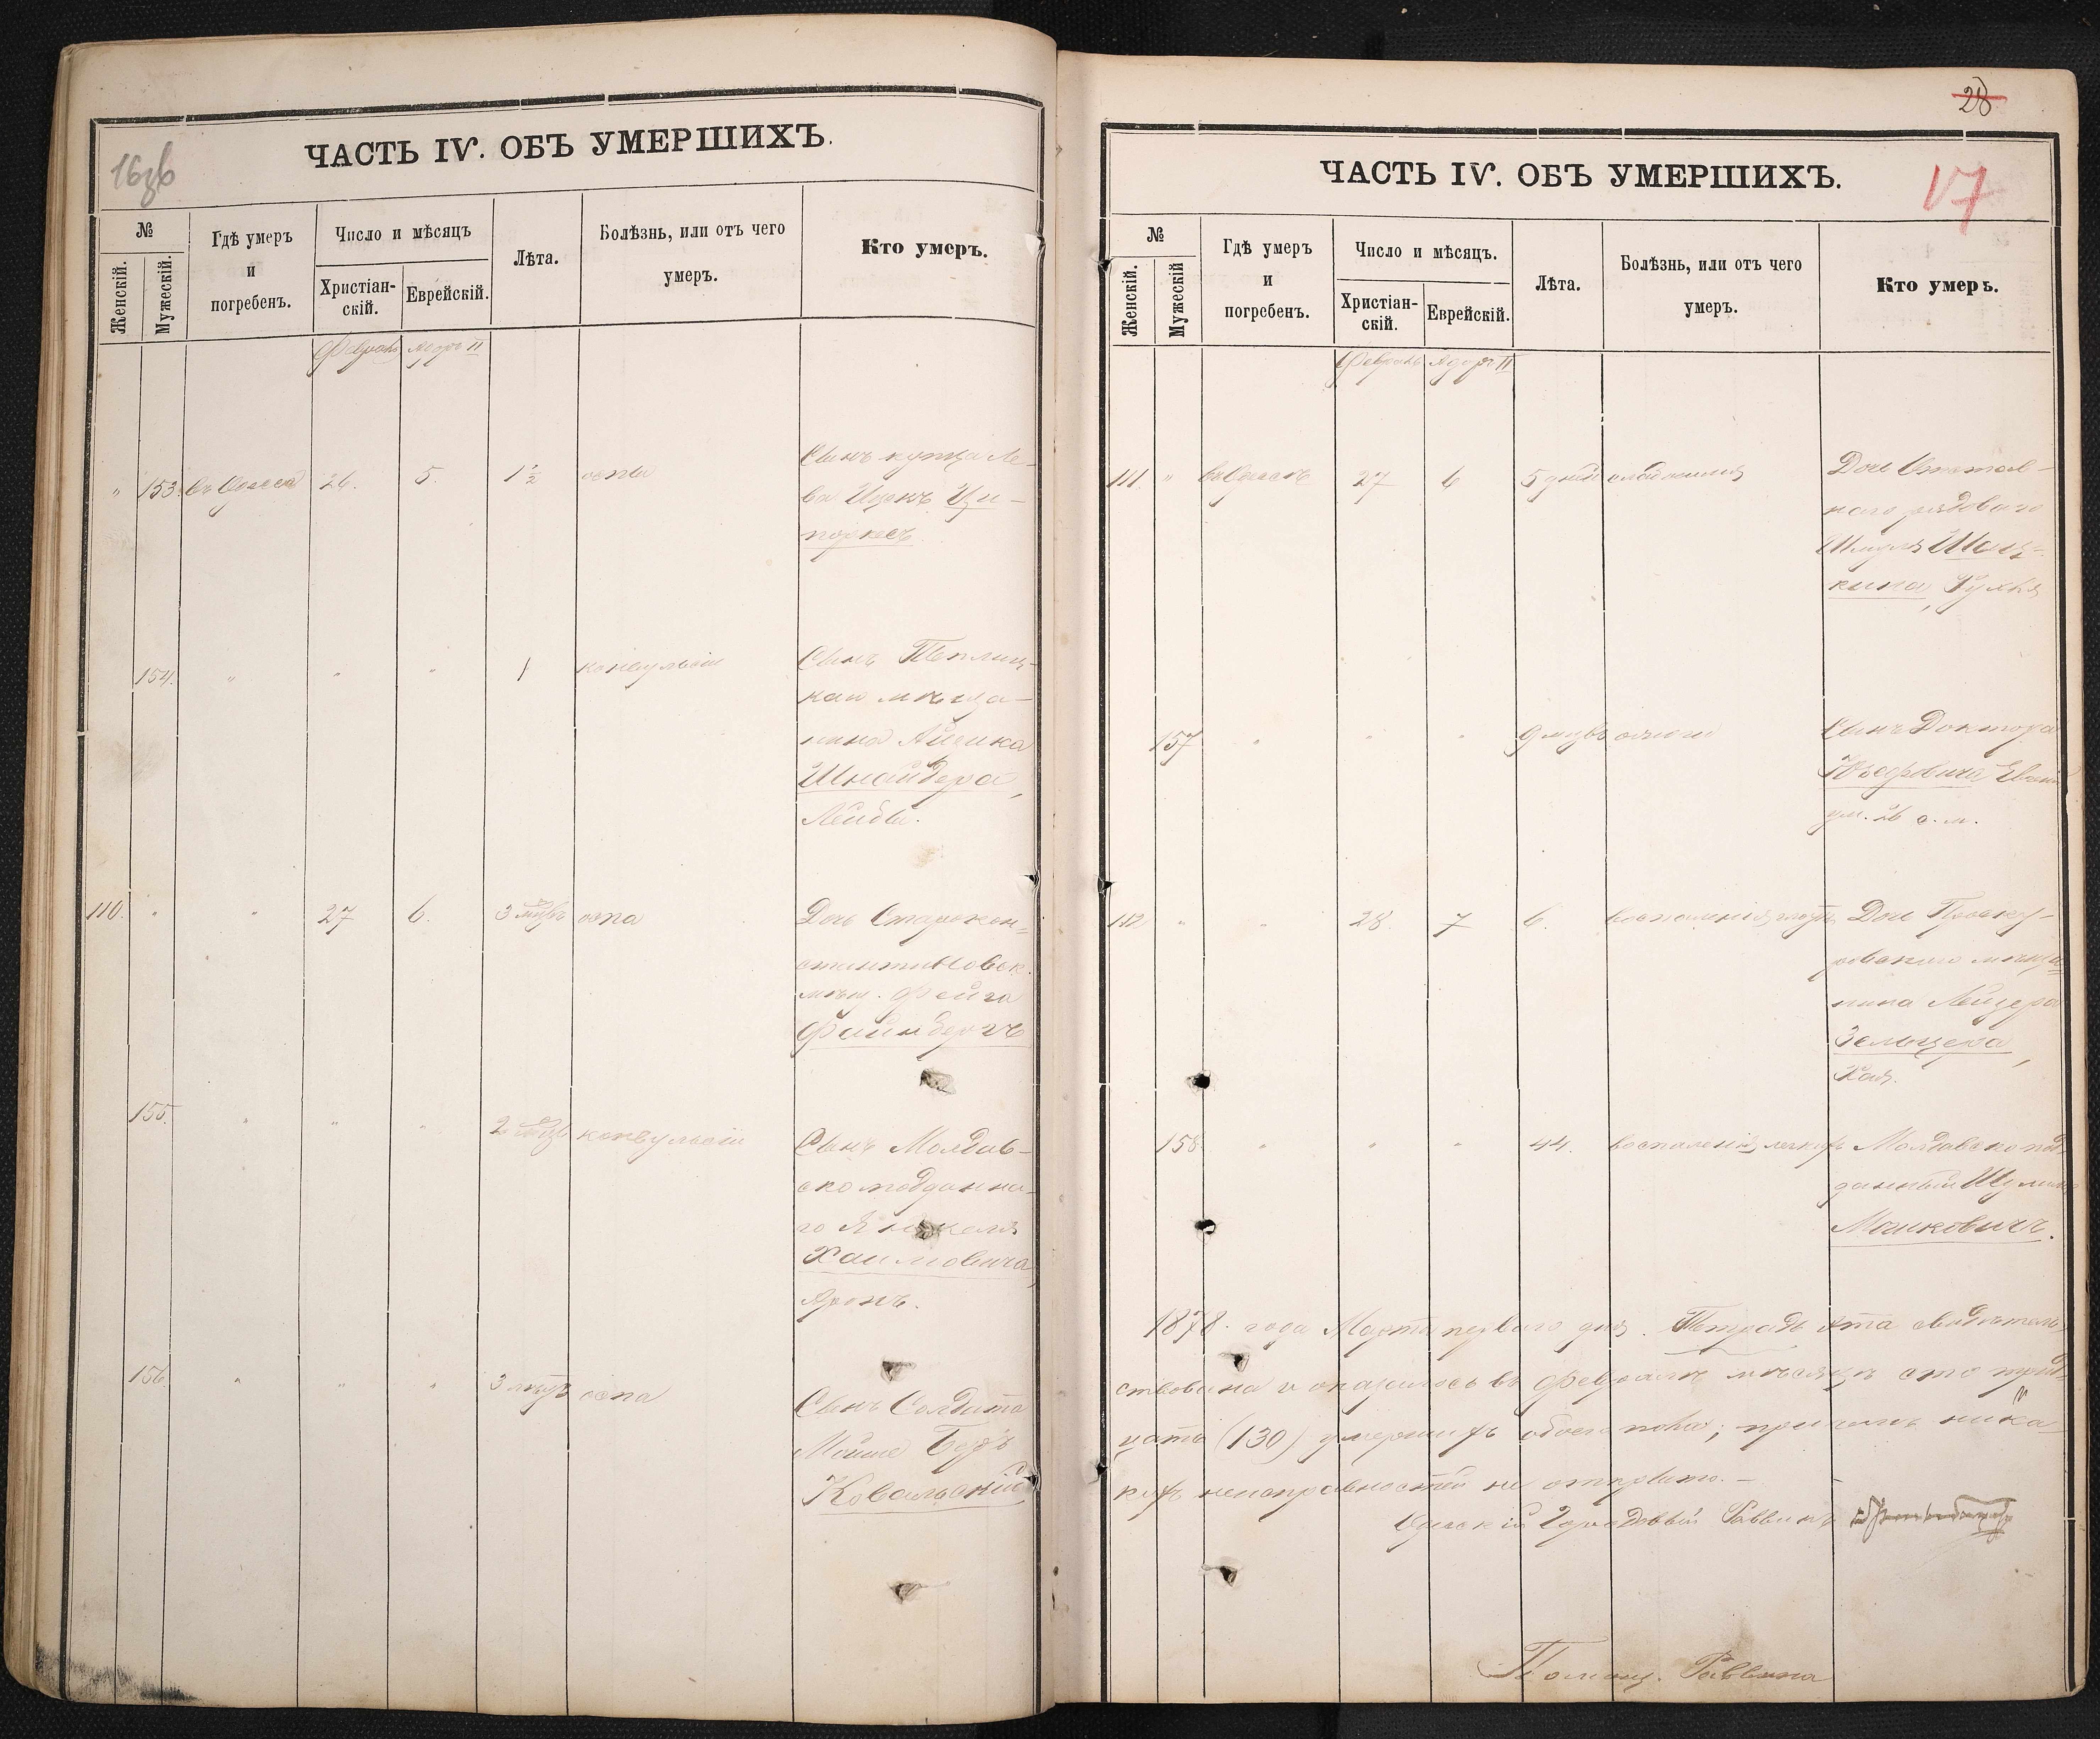 16зв
ЧАСТЬ IV. ОБЪ УМЕРШИХЪ.
№
Женскій.
Мужескій.
Гдѣ умеръ
и
погребенъ.
Число и мѣсяцъ
Христіан-
скій.
Еврейскій.
Лѣта.
Болѣзнь, или отъ чего
умеръ.
Кто умеръ.
Февраль Адоръ II
" 153. въ Одессѣ 26. 5. 1½ оспы
Сынъ купца Ле-
ва Ицекъ Ци-
перкесъ.
154. " " " 1 конвульсіи
Сынъ Теплиц-
каго мѣща-
нина Айзика
Шнайдера,
Лейбы.
110. " " 27 6. 3 мѣц оспа
Дочь Старокон-
стантиновск.
мѣщ. Фейга
Файнбергъ
155. " " " 2 мѣц конвульсіи
Сынъ Молдав-
скоподданна-
го Янкеля
Хаимовича,
Аронъ.
156. " " " 3 мѣц оспа
Сынъ Солдата
Мойше Беръ
Ковальскій
28
17
ЧАСТЬ IV. ОБЪ УМЕРШИХЪ.
№
Женскій.
Мужескій
Гдѣ умеръ
и
погребенъ.
Число и мѣсяцъ.
Христіан-
скій.
Еврейскій.
Лѣта.
Болѣзнь, или отъ чего
умеръ.
Кто умеръ.
Февраль Адоръ II
111. " въ Одессѣ 27 6 5 дней
Дочь Отстав-
наго рядоваго
Шмуля Шац-
кина, Рухля
157 " " " 9 мѣц
Сынъ Доктора
ум. 26 с. м.
112 " " 28. 7 6. воспаленія
Дочь Проску-
ровскаго мѣща-
нина Лейзера
Зельцера,
Хая.
158 " " " 44. воспаленія легкихъ
Молдавскопод-
данный
Мошковичъ.
1878. года Марта перваго дня. Тетрадь эта свидѣтель-
ствована и оказалось въ Февралѣ мѣсяцѣ сто трид-
цать (130) умершихъ обоего пола; причемъ ника-
кихъ неисправностей не открыто. —
Одесскій Городовый Раввинъ
Помощ. Раввина